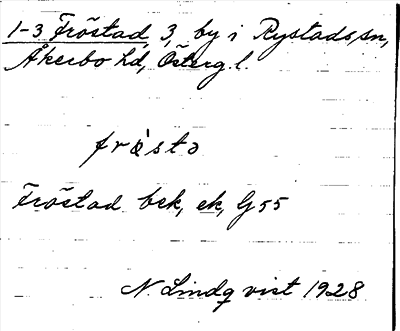 1-3 Fröstad, 3, by i Rystads sn,
Åkerbo hd, Österg. l.
frö̀stə
Fröstad bek, ek, G 55
N. Lindqvist 1928